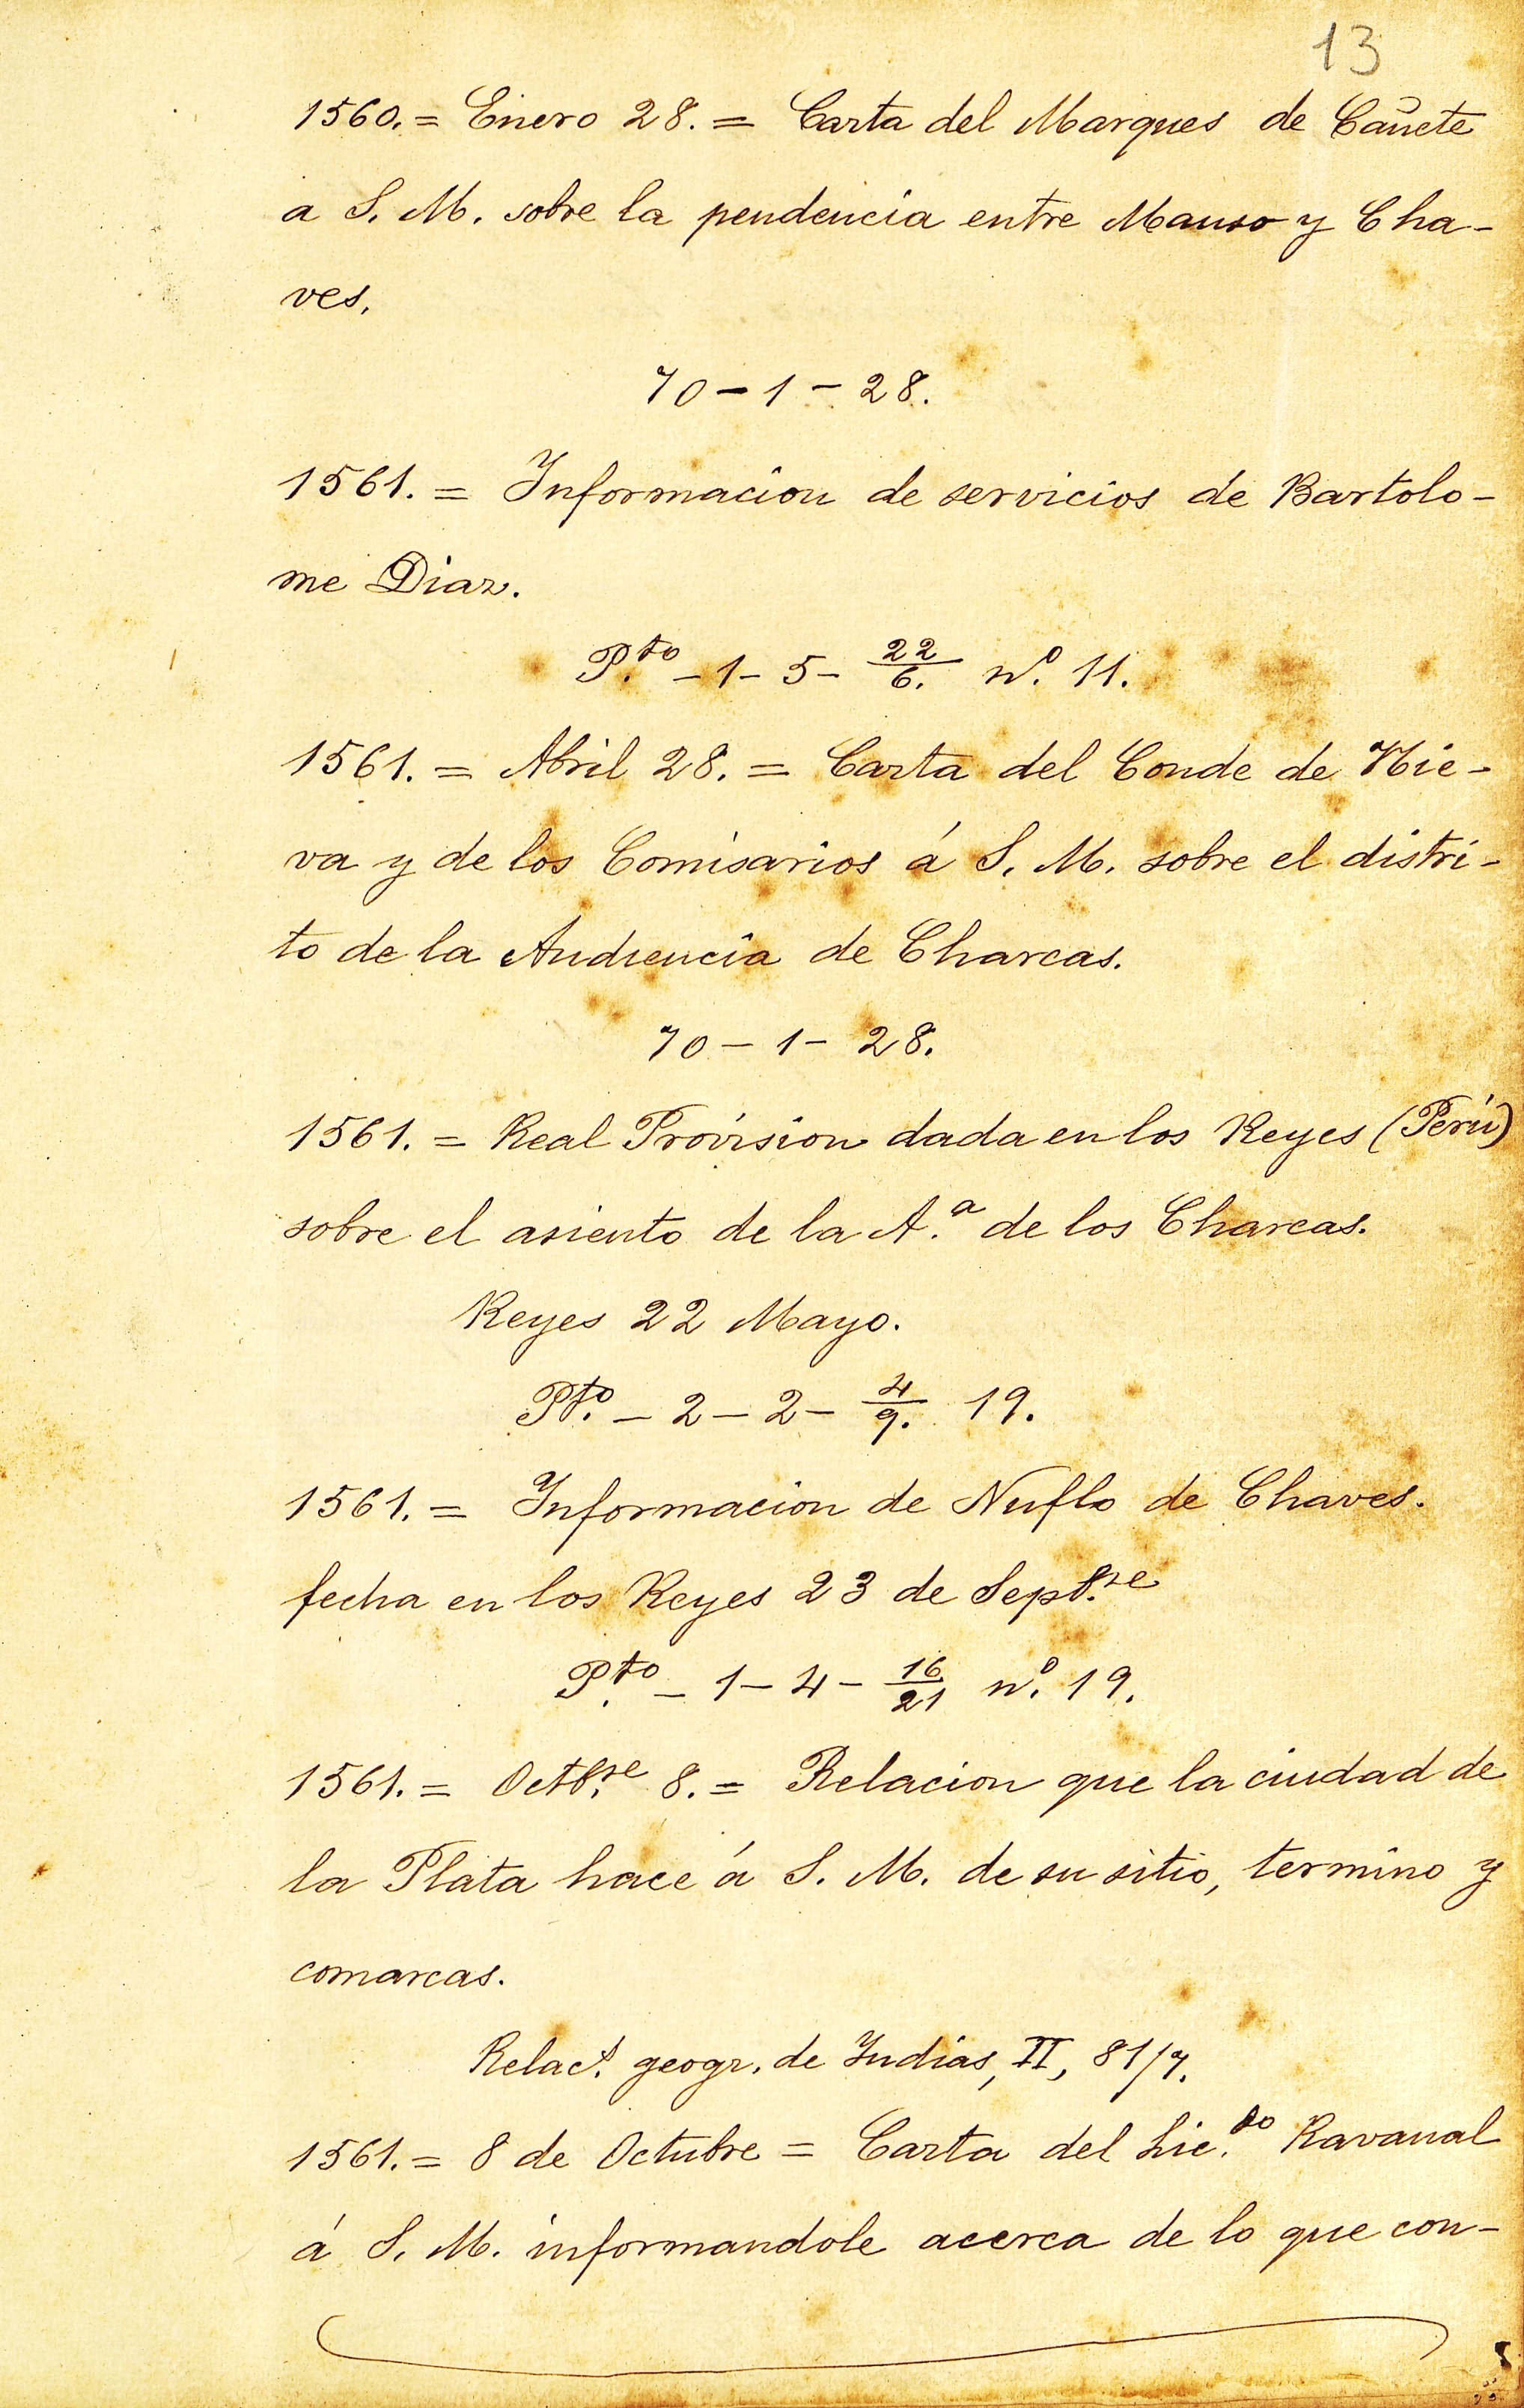 13
1560. = Enero 28. = Carta del Marques de Cañete
a S. M. sobre la pendencia entre Manso y Cha-
ves.
70 - 1 - 28.
1561. = Informacion de servicios de Bartolo-
me Diaz.
P.to - 1 - 5 - 22/6. nº. 11.
1561. = Abril 28. = Carta del Conde de Nie-
va y de los Comisarios á S. M. sobre el distri-
to de la Audiencia de Charcas.
70 - 1 - 28.
1561. = Real Provision dada en los Reyes (Perú)
sobre el asiento de la A.a de los Charcas.
Reyes 22 Mayo.
Pto. - 2 - 2 - 4/9. 19.
1561. = Informacion de Nuflo de Chaves.
fecha en los Reyes 23 de Septb.re
P.to - 1 - 4 - 16/21 nº. 19.
1561. = Octb.re 8. = Relacion que la ciudad de
la Plata hace á S. M. de su sitio, termino y
comarcas.
geogr. de Indias, II, 81/7.
1561. = 8 de Octubre = Carta del Lic.do Ravanal
á S. M. informandole acerca de lo que con-